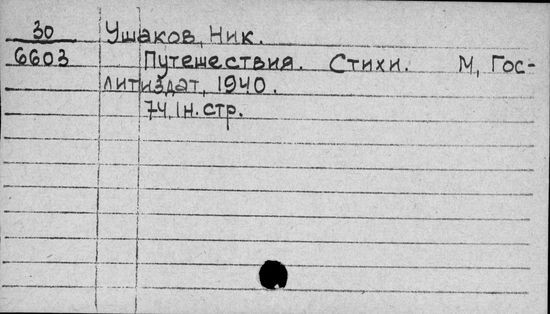 30 Ушаков, Ник.
6603 Путешествия. Стихи. М, Гос-
литиздат, 1940.
74, 1н. стр.